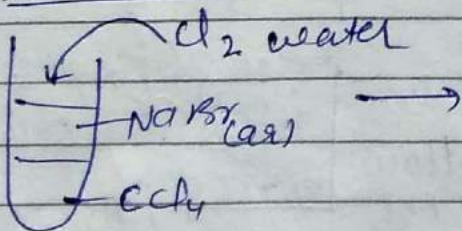 Cl2 water
NaBr(aq)
CCl4